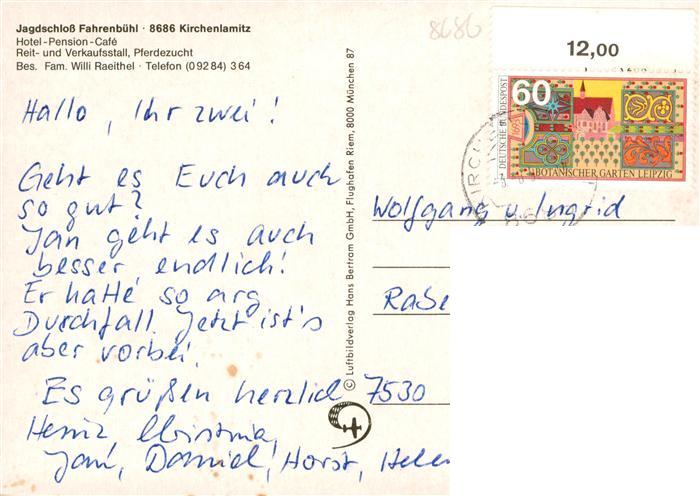 Jagdschloß Fahrenbühl · 8686 Kirchenlamitz
Hotel-Pension-Café
Reit- und Verkaufsstall, Pferdezucht
Bes. Fam. Willi Raeithel · Telefon (0 92 84) 3 64
8686
12,00
60
DEUTSCHE BUNDESPOST
BOTANISCHER GARTEN LEIPZIG
Hallo, Ihr zwei!
Geht es Euch auch
so gut?
Jan geht es auch
besser, endlich!
Er hatte so arg
Durchfall. Jetzt ist's
aber vorbei.
Es grüßen herzlich
Heinz, Christina,
Jan, Daniel, Horst, Helen
© Luftbildverlag Hans Bertram GmbH, Flughafen Riem, 8000 München 87
Wolfgang u. Ingrid
7530